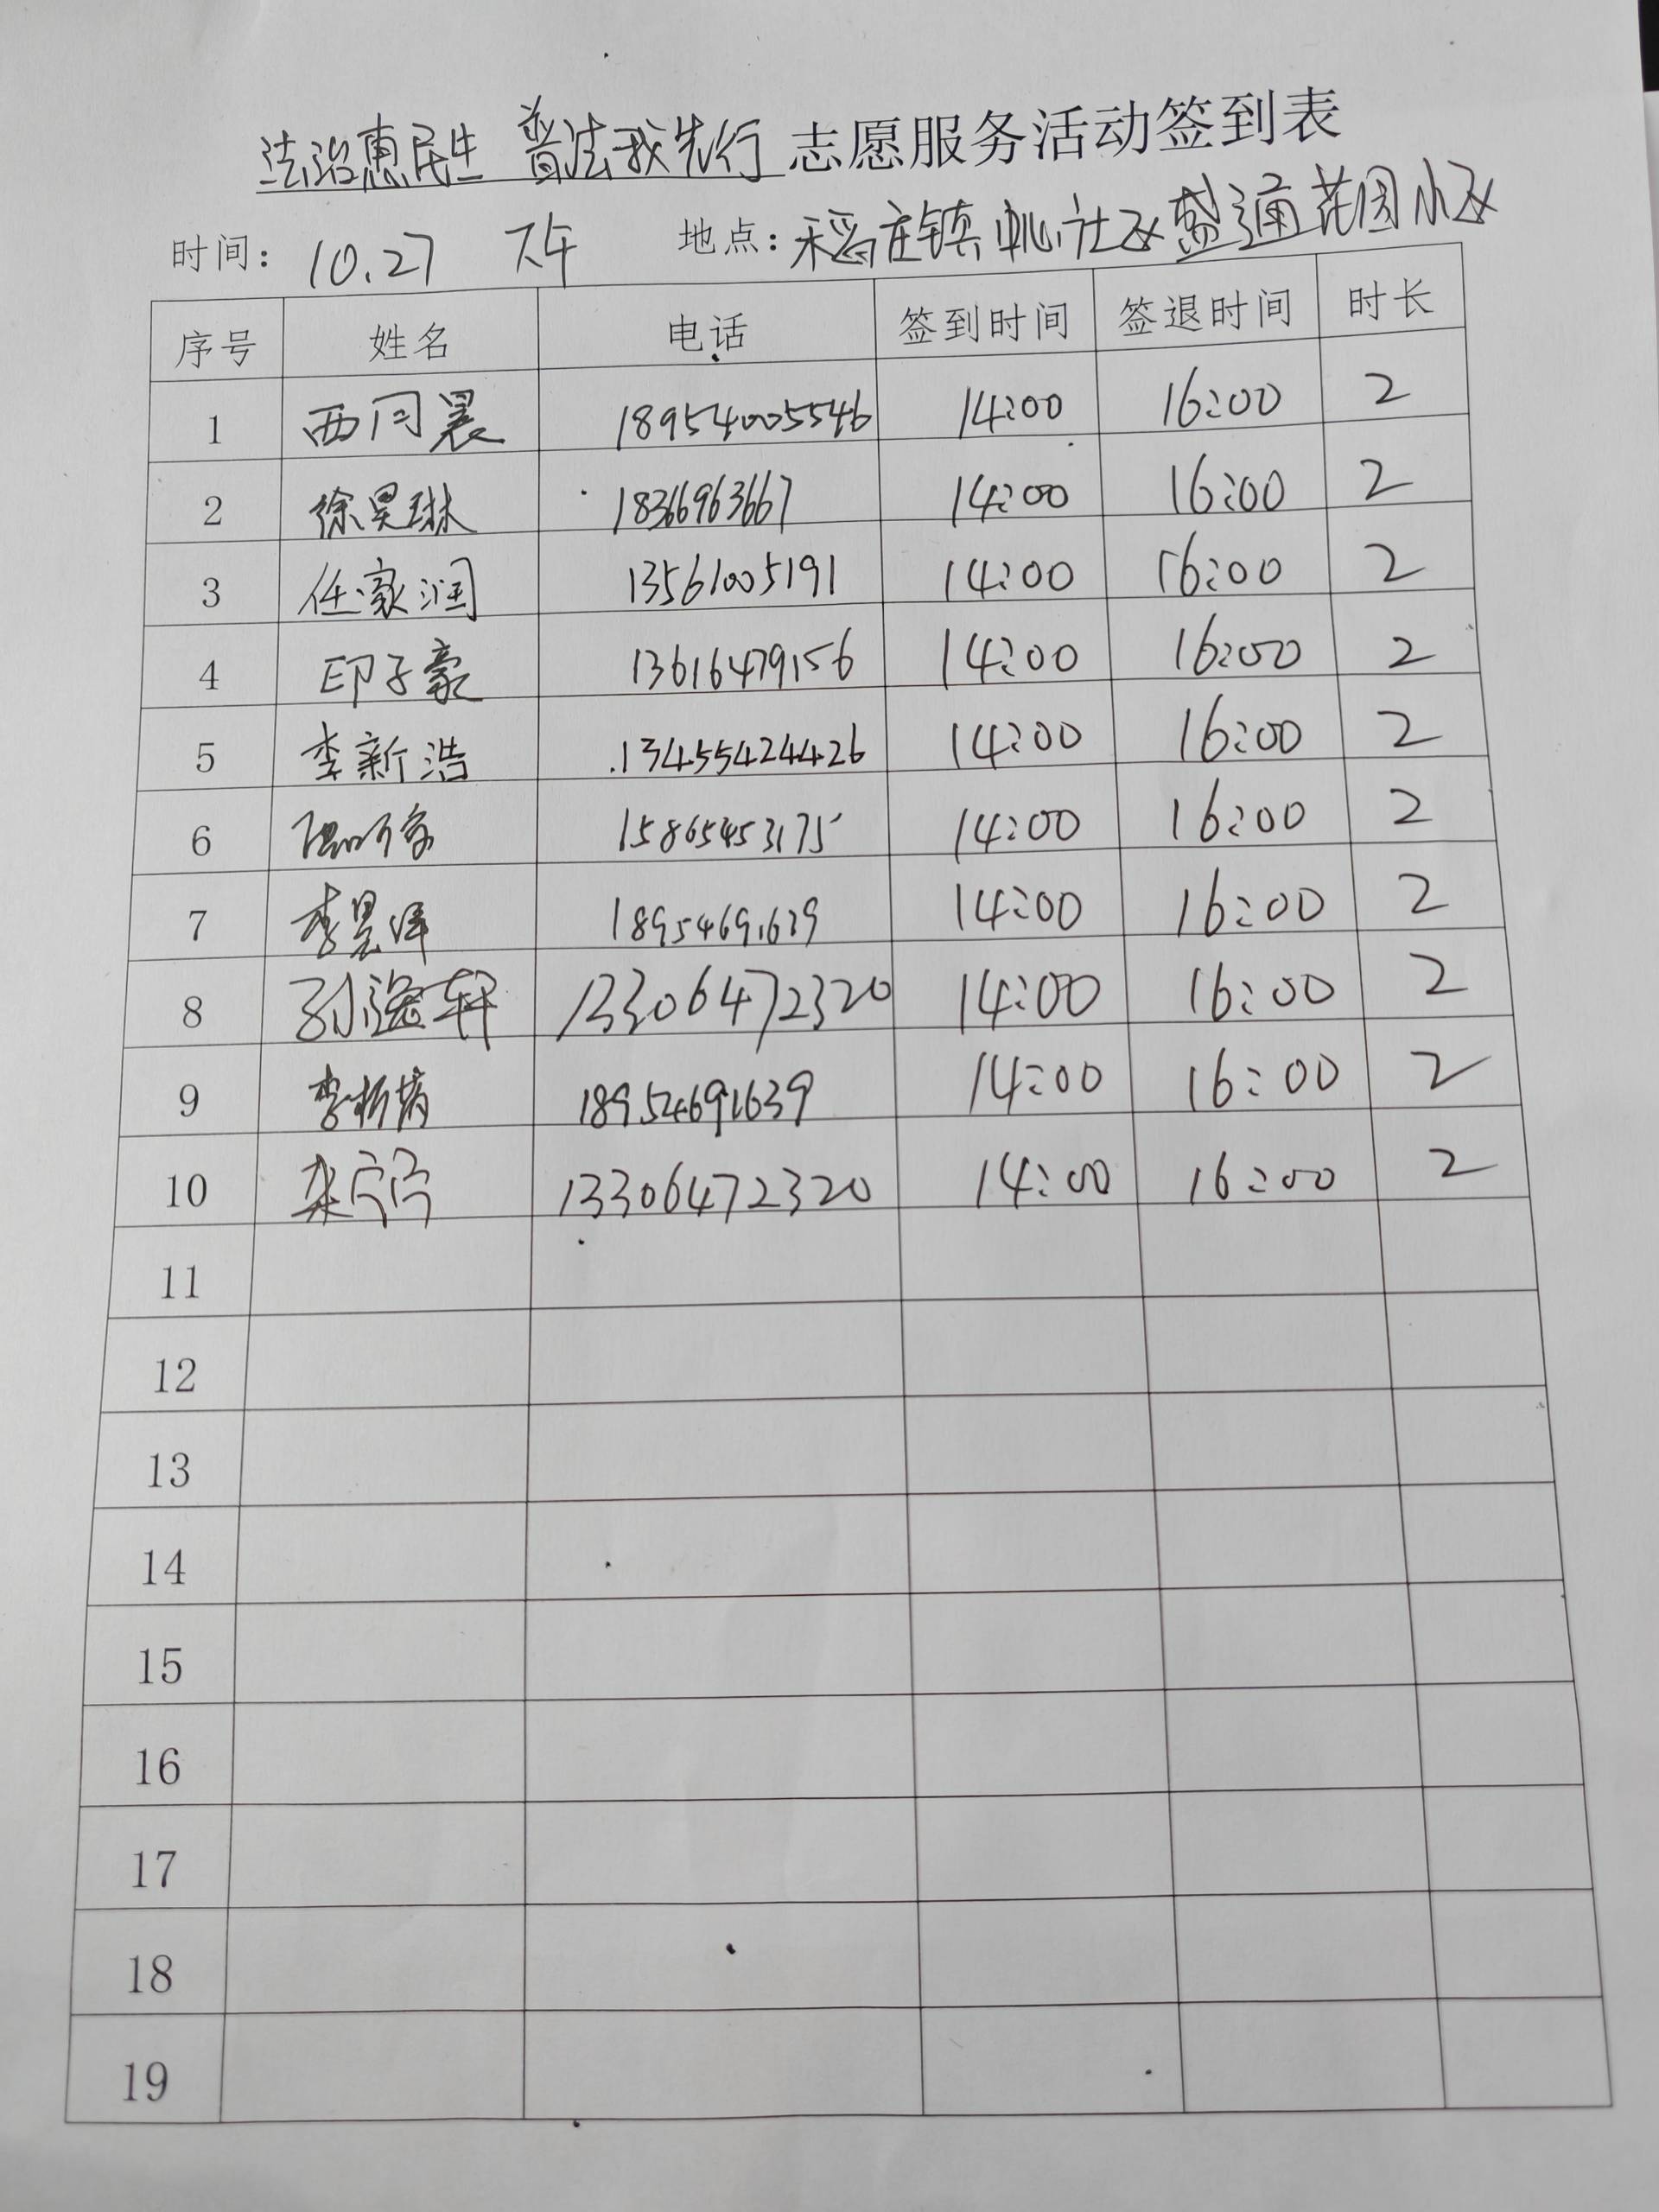 法治惠民生 普法我先行 志愿服务活动签到表
时间: 10.27 下午 地点: 稻庄镇中心社区盛通花园小区
序号 姓名 电话 签到时间 签退时间 时长
1 西同晨 18954005546 14:00 16:00 2
2 徐昊琳 18366963667 14:00 16:00 2
3 任豪润 13561005191 14:00 16:00 2
4 印子豪 13616479156 14:00 16:00 2
5 李新浩 13455424426 14:00 16:00 2
6 15865453175 14:00 16:00 2
7 李昊 14:00 16:00 2
8 孙逸轩 13306472320 14:00 16:00 2
9 李 18954691639 14:00 16:00 2
10 宁宁 13306472320 14:00 16:00 2
11
12
13
14
15
16
17
18
19